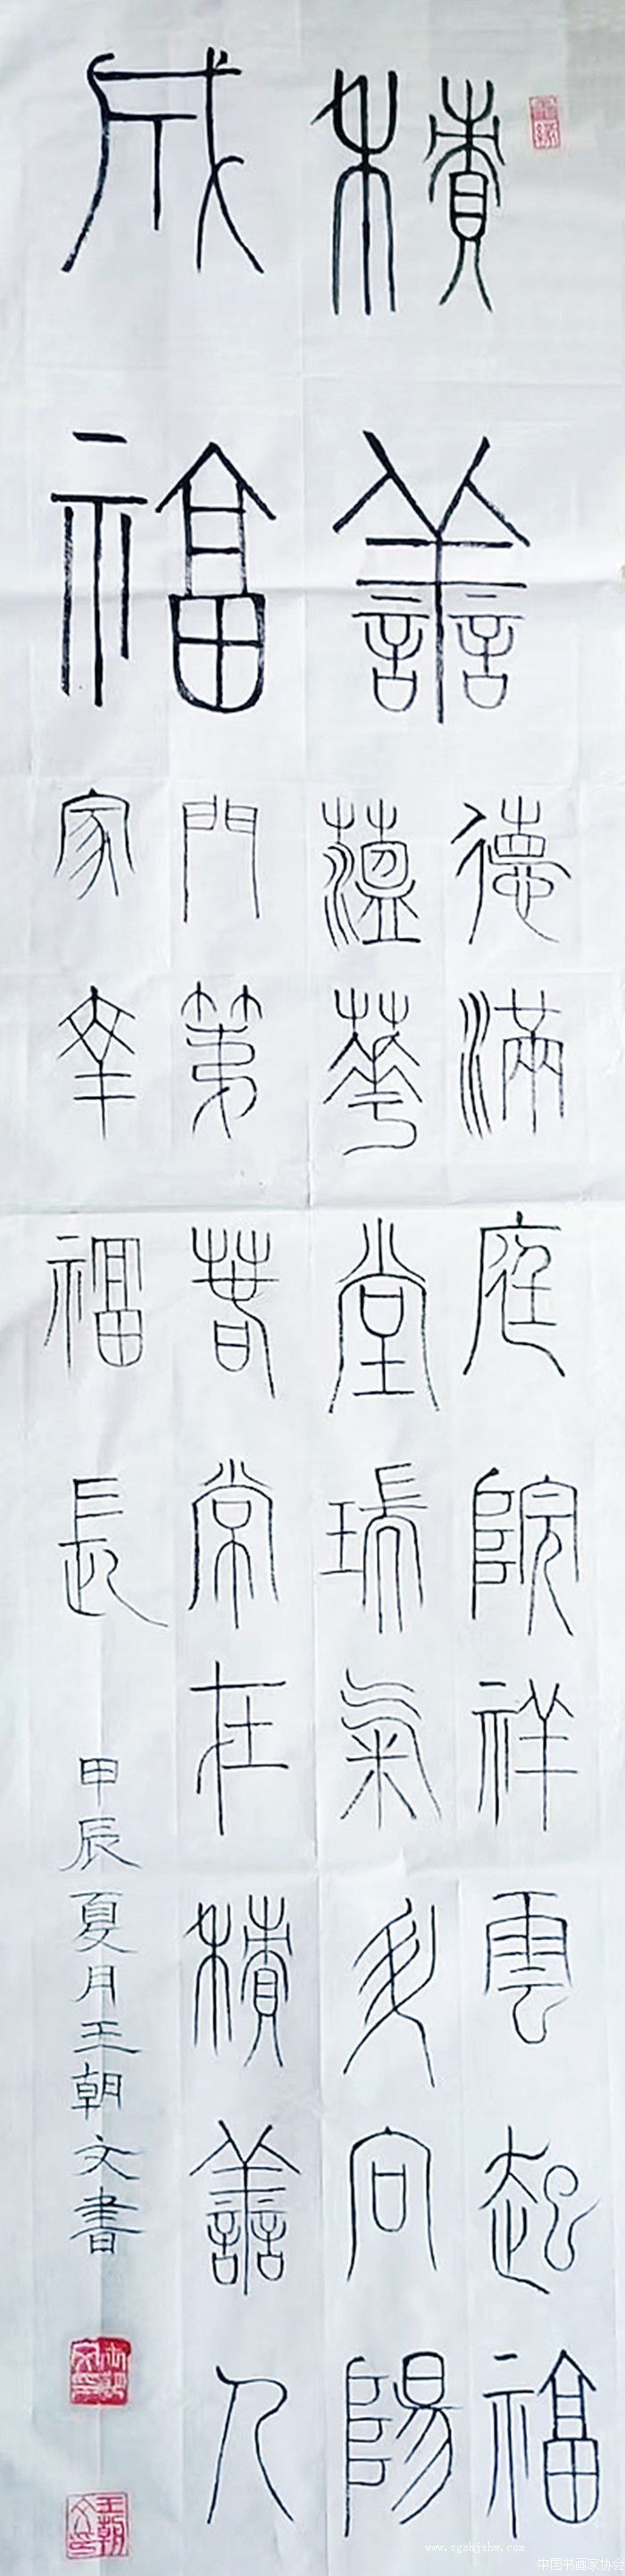 積善
成福
德滿庭院祥雲起福
蘊華堂瑞氣多向陽
門第春常在積善人
家幸福長
甲辰夏月王朝文書
王朝文印
中国书画家协会